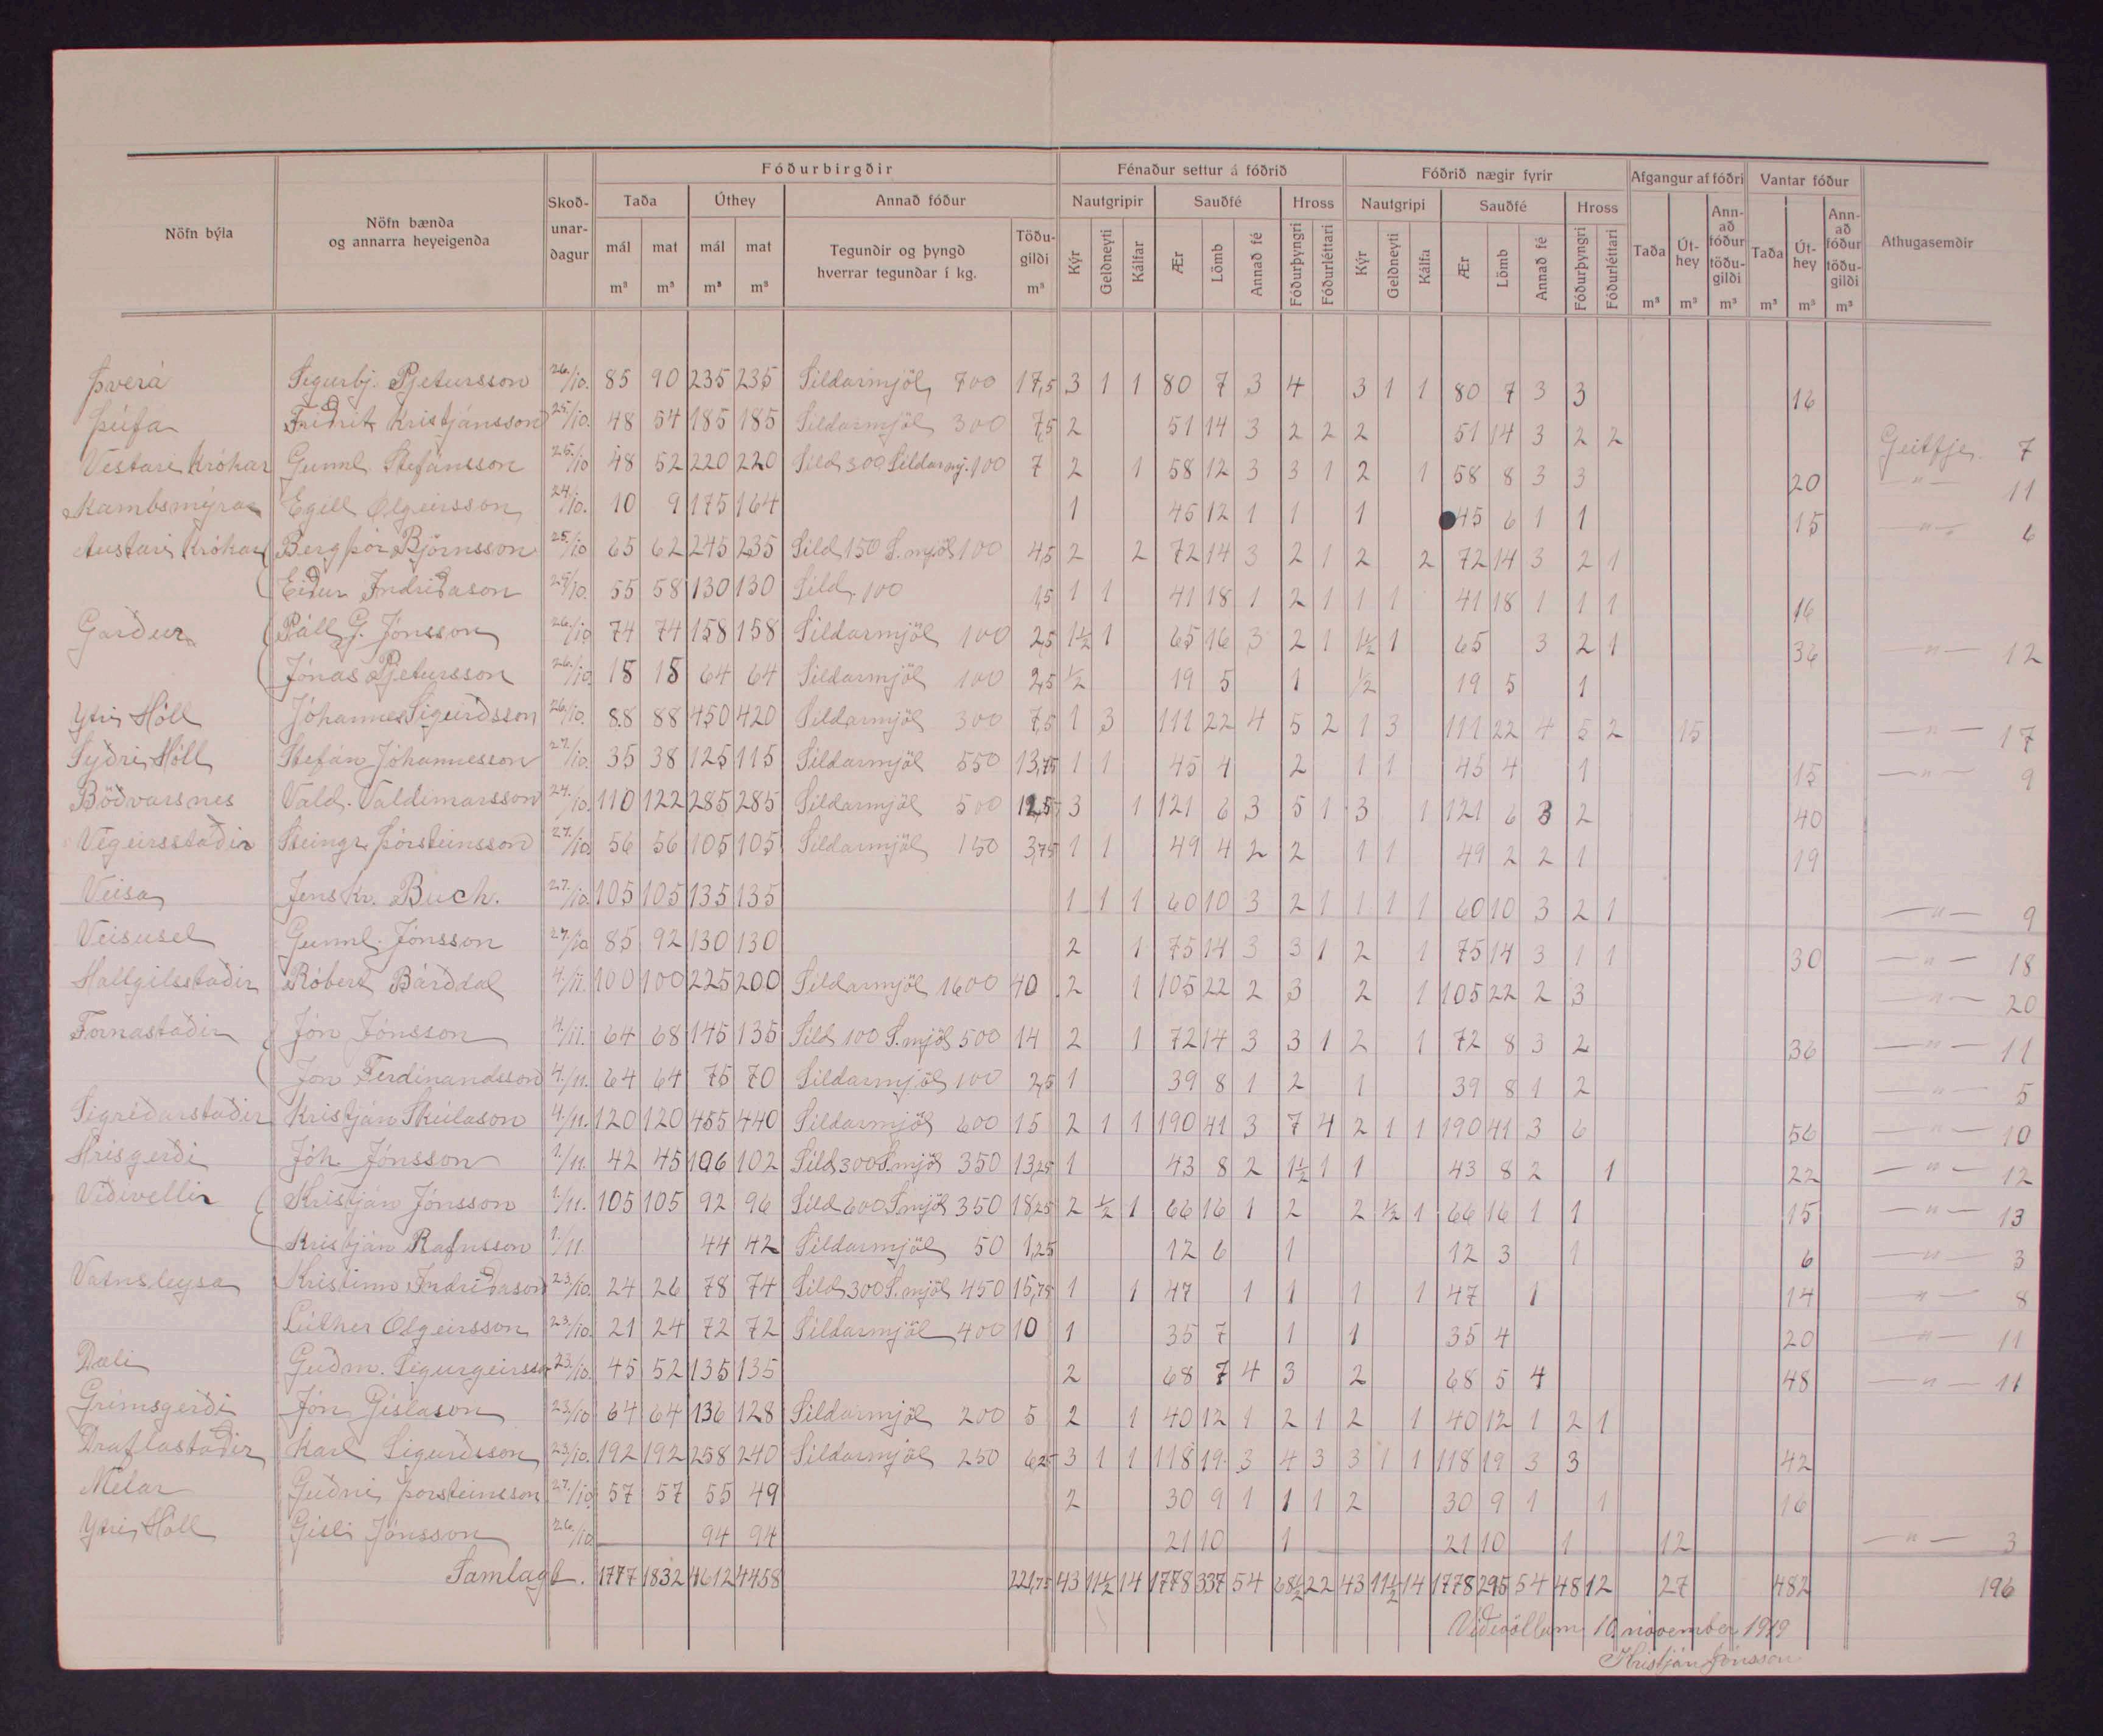 Fóðurbirgðir Fénaður settur á fóðrið Fóðrið nægir fyrir Afgangur af fóðri Vantar fóður
Nöfn býla Nöfn bænda og annarra heyeigenda Skoð-unar-dagur Taða Úthey Annað fóður Nautgripir Sauðfé Hross Nautgripi Sauðfé Hross Athugasemdir
mál m³ mat m³ mál m³ mat m³ Tegundir og þyngd hverrar tegundar í kg. Töðu-gildi m³ Kýr Geldneyti Kálfar Ær Lömb Annað fé Fóðurþyngri Fóðurléttari Kýr Geldneyti Kálfa Ær Lömb Annað fé Fóðurþyngri Fóðurléttari Taða m³ Út-hey m³ Ann-að fóður töðu-gildi m³ Taða m³ Út-hey m³ Ann-að fóður töðu-gildi m³
Þverá Sigurbj. Pjetursson 26./10. 85 90 235 235 Síldarmjöl 700 17,5 3 1 1 80 7 3 4 3 1 1 80 7 3 3 16
Þúfa Friðrik Kristjánsson 25./10. 48 54 185 185 Síldarmjöl 300 7,5 2 51 14 3 2 2 2 51 14 3 2 2 Geitfje. 7
Vestari Krókar Gunnl. Stefánsson 25./10 48 52 220 220 Síld 300 Síldarmj. 100 7 2 1 58 12 3 3 1 2 1 58 8 3 3 20 —"— 11
Kambsmýrar Egill Olgeirsson 24/10. 10 9 175 164 1 45 12 1 1 1 45 6 1 1 15 —"— 6
Austari Krókar Bergþór Björnsson 25./10 65 62 245 235 Síld 150 S.mjöl 100 4,5 2 2 72 14 3 2 1 2 2 72 14 3 2 1
Eiður Indriðason 25/10. 55 58 130 130 Síld 100 1,5 1 1 41 18 1 2 1 1 1 41 18 1 1 1 16
Garður Páll G. Jónsson 26./10 74 74 158 158 Síldarmjöl 100 2,5 1½ 1 65 16 3 2 1 1½ 1 65 3 2 1 36 —"— 12
Jónas Pjetursson 26./10 18 18 64 64 Síldarmjöl 100 2,5 ½ 19 5 1 ½ 19 5 1
Ytri Hóll Jóhannes Sigurðsson 26/10. 88 88 450 420 Síldarmjöl 300 7,5 1 3 111 22 4 5 2 1 3 111 22 4 5 2 15 —"— 17
Syðri Hóll Stefán Jóhannesson 27./10. 35 38 125 115 Síldarmjöl 550 13,75 1 1 45 4 2 1 1 45 4 1 15 —"— 9
Böðvarsnes Vald. Valdimarsson 24./10. 110 122 285 285 Síldarmjöl 500 12,5 3 1 121 6 3 5 1 3 1 121 6 3 2 40
Végeirsstaðir Steingr. Þórsteinsson 27./10 56 56 105 105 Síldarmjöl 150 3,75 1 1 49 4 2 2 1 1 49 2 2 1 19
Veisa Jens Kr. Buch. 27./10. 105 105 135 135 1 1 1 60 10 3 2 1 1 1 1 60 10 3 2 1 —"— 9
Veisusel Gunnl. Jónsson 27./10 85 92 130 130 2 1 75 14 3 3 1 2 1 75 14 3 1 1 30 —"— 18
Hallgilsstaðir Róbert Bárðdal 4./11. 100 100 225 200 Síldarmjöl 1600 40 2 1 105 22 2 3 2 1 105 22 2 3 —"— 20
Fornastaðir Jón Jónsson 4./11. 64 68 145 135 Síld 100 S.mjöl 500 14 2 1 72 14 3 3 1 2 1 72 8 3 2 36 —"— 11
Jón Ferdinandsson 4./11. 64 64 75 70 Síldarmjöl 100 2,5 1 39 8 1 2 1 39 8 1 2 —"— 5
Sigríðarstaðir Kristján Skúlason 4./11. 120 120 455 440 Síldarmjöl 600 15 2 1 1 190 41 3 7 4 2 1 1 190 41 3 6 56 —"— 10
Hrísgerði Jóh. Jónsson 1./11. 42 45 106 102 Síld 300 S.mjöl 350 13,25 1 43 8 2 1½ 1 1 43 8 2 1 22 —"— 12
Víðivellir Kristján Jónsson 1/11. 105 105 92 96 Síld 600 S.mjöl 350 18,25 2 ½ 1 66 16 1 2 2 ½ 1 66 16 1 1 15 —"— 13
Kristján Rafnsson 1./11 44 42 Síldarmjöl 50 1,25 12 6 1 12 3 1 6 —"— 3
Vatnsleysa Kristinn Indriðason 23/10. 24 26 78 74 Síld 300 S.mjöl 450 15,75 1 1 47 1 1 1 1 47 1 14 —"— 8
Lúther Olgeirsson 23./10. 21 24 72 72 Síldarmjöl 400 10 1 35 7 1 1 35 4 20 —"— 11
Dæli Guðm. Sigurgeirsson 23./10. 45 52 135 135 2 68 7 4 3 2 68 5 4 48 —"— 11
Grímsgerði Jón Gíslason 23/10 64 64 136 128 Síldarmjöl 200 5 2 1 40 12 1 2 1 2 1 40 12 1 2 1
Draflastaðir Karl Sigurðsson 23/10. 192 192 258 240 Síldarmjöl 250 6,25 3 1 1 118 19 3 4 3 3 1 1 118 19 3 3 42
Melar Guðni Þorsteinsson 27./10 57 57 55 49 2 30 9 1 1 1 2 30 9 1 1 16
Ytri Hóll Gísli Jónsson 26/10 94 94 21 10 1 21 10 1 12 —"— 3
Samlagt. 1777 1832 4612 4458 221,75 43 11½ 14 1778 337 54 68½ 22 43 11½ 14 1778 295 54 48 12 27 482 196
Víðivöllum 10. november 1919
Kristján Jónsson